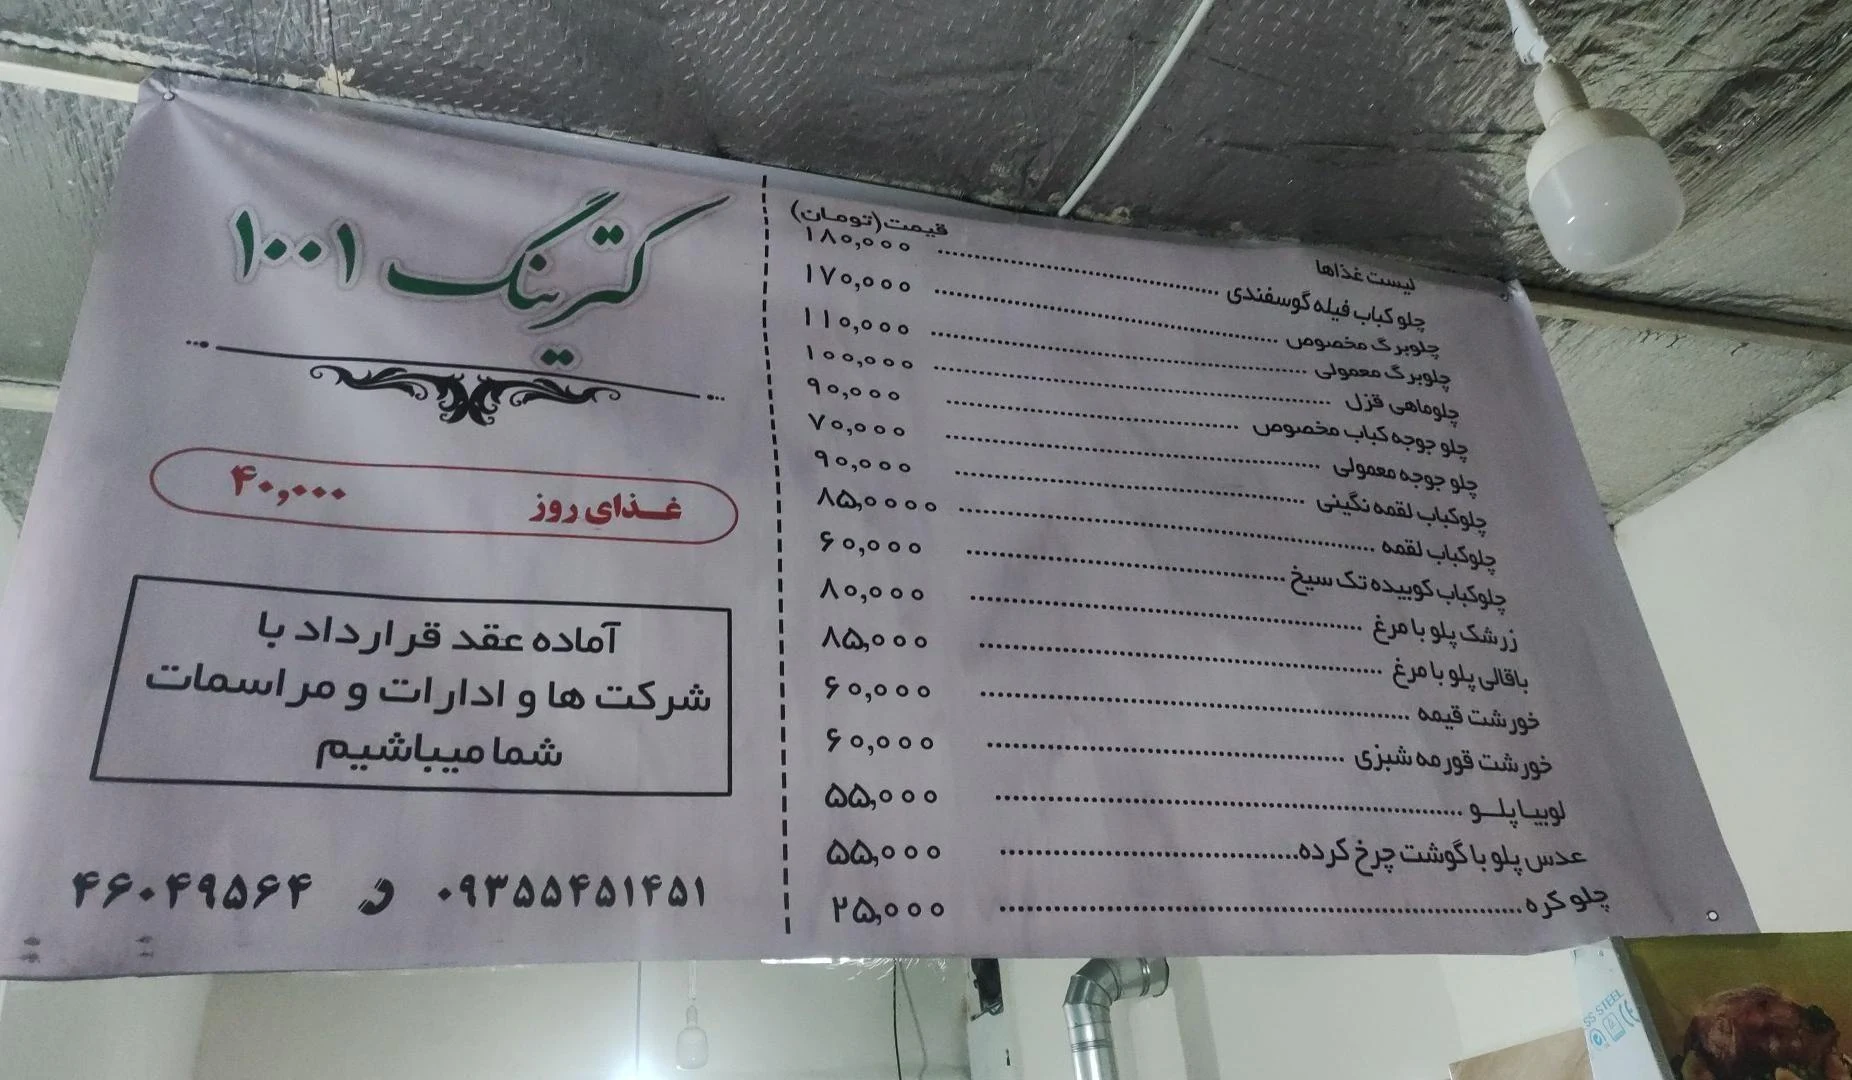 لیست غذاها قیمت(تومان)
چلو کباب فیله گوسفندی ........ ۱۸۰,۰۰۰
چلوبرگ مخصوص ........ ۱۷۰,۰۰۰
چلوبرگ معمولی ........ ۱۱۰,۰۰۰
چلوماهی قزل ........ ۱۰۰,۰۰۰
چلو جوجه کباب مخصوص ........ ۹۰,۰۰۰
چلو جوجه معمولی ........ ۷۰,۰۰۰
چلوکباب لقمه نگینی ........ ۹۰,۰۰۰
چلوکباب لقمه ........ ۸۵,۰۰۰۰
چلوکباب کوبیده تک سیخ ........ ۶۰,۰۰۰
زرشک پلو با مرغ ........ ۸۰,۰۰۰
باقالی پلو با مرغ ........ ۸۵,۰۰۰
خورشت قیمه ........ ۶۰,۰۰۰
خورشت قورمه شبزی ........ ۶۰,۰۰۰
لوبیا پلو ........ ۵۵,۰۰۰
عدس پلو با گوشت چرخ کرده ........ ۵۵,۰۰۰
چلو کره ........ ۲۵,۰۰۰
کترینگ ۱۰۰۱
غذای روز ۴۰,۰۰۰
آماده عقد قرارداد با
شرکت ها و ادارات و مراسمات
شما میباشیم
۰۹۳۵۵۴۵۱۴۵۱ و ۴۶۰۴۹۵۶۴
SS STEEL
CE